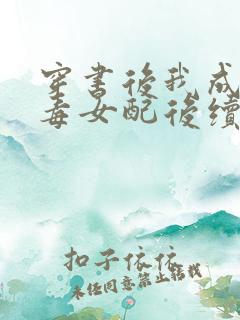 穿書後我成
毒女配後續
扣子依依
未经同意禁止转载